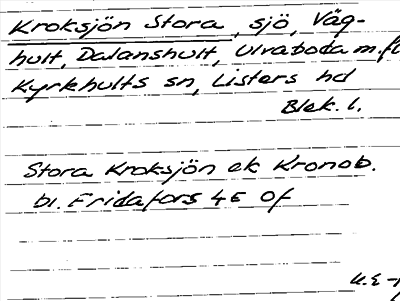 Kroksjön Stora, sjö, Väg-
hult, Dalanshult, Ulvaboda m.fl
Kyrkhults sn, Listers hd
Blek. l.
Stora Kroksjön ek Kronob.
bl. Fridafors 4E Of